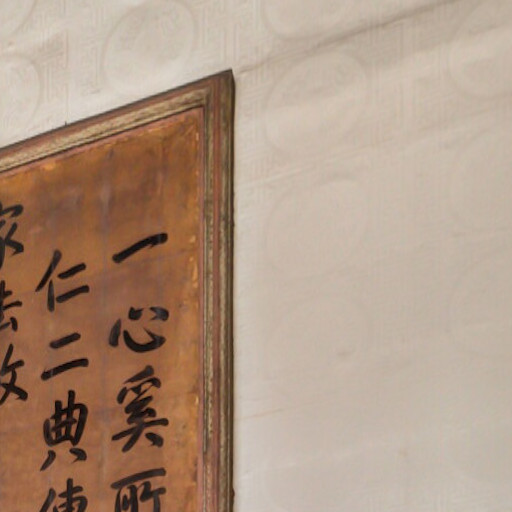 一心奚所
仁二典傳
家法敬